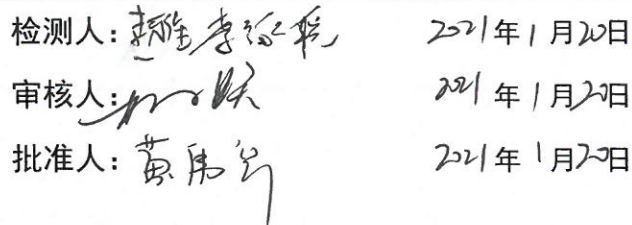 检测人： 2021年1月20日
审核人： 2021年1月20日
批准人：黄 2021年1月20日